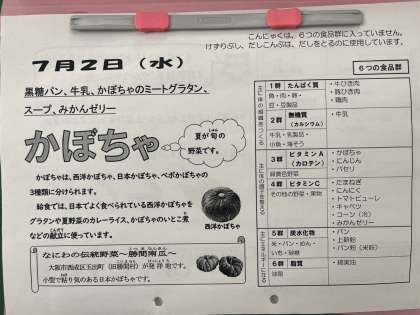 こんにゃくは、6つの食品群に入っていません。
けずりぶし、だしこんぶは、だしをとるのに使用しています。
7月2日（水）
黒糖パン、牛乳、かぼちゃのミートグラタン、
スープ、みかんゼリー
かぼちゃ
夏が旬の
野菜です。
かぼちゃは、西洋かぼちゃ、日本かぼちゃ、ペポかぼちゃの
3種類に分けられます。
給食では、日本でよく食べられている西洋かぼちゃを
グラタンや夏野菜のカレーライス、かぼちゃのいとこ煮
などの献立に使っています。
西洋かぼちゃ
なにわの伝統野菜～勝間南瓜～
大阪市西成区玉出町（旧勝間村）が発祥地です。
小型で粘り気のある日本かぼちゃです。
6つの食品群
1群 たんぱく質
魚・肉・卵・
豆・豆製品
・牛ひき肉
・豚ひき肉
・鶏肉
2群 無機質
（カルシウム）
牛乳・乳製品・
小魚・海そう
・牛乳
3群 ビタミンA
（カロテン）
緑黄色野菜
・かぼちゃ
・にんじん
・パセリ
4群 ビタミンC
その他の野菜・果物
・たまねぎ
・にんにく
・トマトピューレ
・キャベツ
・コーン（冷）
・みかんゼリー
5群 炭水化物
米・パン・めん・
いも・砂糖
・パン
・上新粉
・パン粉（米粉）
6群 脂質
油脂
・綿実油